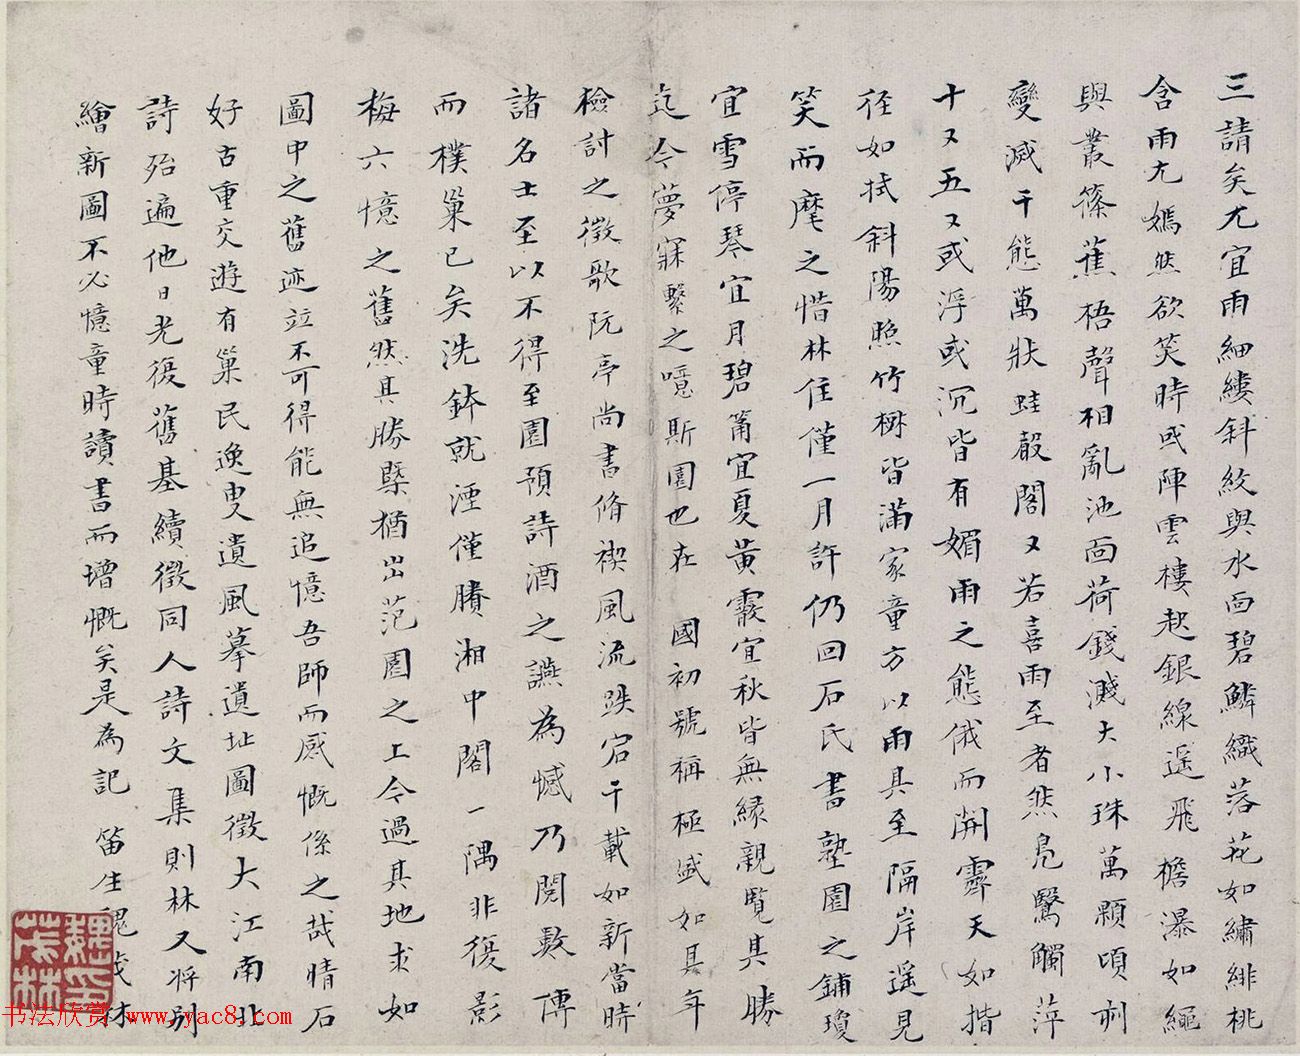 三請矣尤宜雨細縷斜紋與水面碧鱗織落花如繡緋桃
含雨尤嫣然欲笑時或陣雲樓起銀線遥飛檐瀑如繩
與叢篠蕉梧聲相亂池面荷錢濺大小珠萬顆頃刻
變滅千態萬狀蛙鼓閣又若喜雨至者然鳧鷖觸萍
十又五又或浮或沉皆有媚雨之態俄而開霽天如揩
径如拭斜陽照竹樹皆滿家童方以雨具至隔岸遥見
笑而麾之惜林住僅一月許仍回石氏書塾園之鋪瓊
宜雪停琴宜月碧筩宜夏黄霰宜秋皆無緣親覽其勝
迄今夢寐繫之噫斯園也在 國初號稱極盛如其年
檢討之徵歌阮亭尚書脩禊風流跌宕千載如新當時
諸名士至以不得至園預詩酒之讌為憾乃閱數傳
而樸巢已矣洗鉢就湮僅賸湘中閣一隅非復影
梅六憶之舊然其勝槩猶出范園之上今過其地求如
圖中之舊迹竝不可得能無追憶吾師而感慨係之哉晴石
好古重交遊有巢民逸叟遺風摹遺址圖徵大江南北
詩殆遍他日光復舊基續徵同人詩文集則林又將别
繪新圖不必憶童時讀書而增慨矣是為記 笛生魏茂林
书法欣赏 www.yac8.com